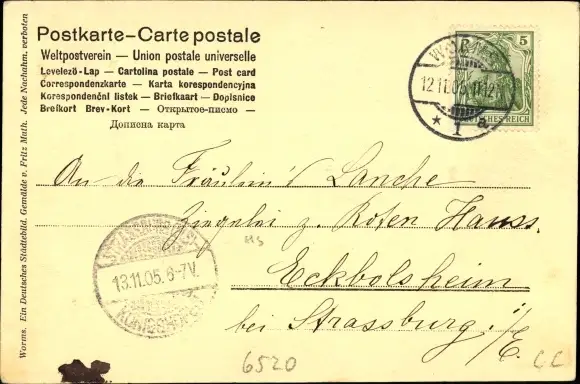 Postkarte–Carte postale
Weltpostverein — Union postale universelle
Levelező-Lap — Cartolina postale — Post card
Correspondenzkarte — Karta korespondencyjna
Korespondenční listek — Briefkaart — Dopisnice
Brefkort Brev-Kort — Открытое-писмо —
Дописна карта
Worms. Ein Deutsches Städtebild. Gemälde v. Fritz Muth. Jede Nachahm. verboten
5
WORMS
12.11.05.
* 1 a
DEUTSCHES REICH
An die Fräulein's Lanche
Ziegelei z. Roten Hauss.
Eckbolsheim
bei Strassburg i/E.
13.11.05. 6-7V.
6520